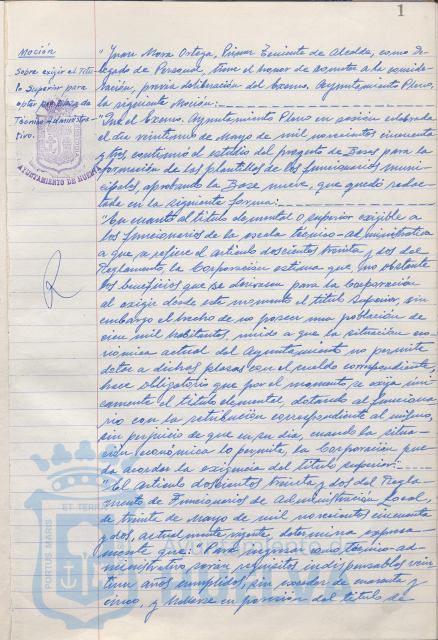 1
Moción
Sobre exigir el Títu-
lo Superior para
optar por plaza de
Técnico-Administra-
tivo.
AYUNTAMIENTO DE HUELVA
"Juan Mora Ortega, Primer Teniente de Alcalde, como De-
legado de Personal, tiene el honor de someter a la conside-
ración, previa deliberación del Excmo. Ayuntamiento Pleno,
la siguiente Moción:
"Que el Excmo. Ayuntamiento Pleno en sesión celebrada
el día veintiuno de Mayo de mil novecientos cincuenta
y tres continuó el estudio del proyecto de Bases para la
formación de las plantillas de los funcionarios muni-
cipales, aprobando la Base nueve, que quedó redac-
tada en la siguiente forma:
"En cuanto al título elemental o superior exigible a
los funcionarios de la escala técnico-administrativa
a que se refiere el artículo doscientos treinta y dos del
Reglamento, la Corporación estima que, no obstante
los beneficios que se derivan para la Corporación
el exigir desde este momento el título superior, sin
embargo el hecho de no poseer una población de
cien mil habitantes, unido a que la situación eco-
nómica actual del Ayuntamiento no permite
dotar a dichas plazas con el sueldo correspondiente,
hace obligatorio que por el momento se exija úni-
camente el título elemental, dotando al funciona-
rio con la retribución correspondiente al mismo,
sin perjuicio de que en su día, cuando la situa-
ción económica lo permita, la Corporación pue-
da acordar la exigencia del título superior.
"El artículo doscientos treinta y dos del Regla-
mento de Funcionarios de Administración Local,
de treinta de Mayo de mil novecientos cincuenta
y dos, actualmente vigente, determina expresa-
mente que: "Para ingresar como técnico-ad-
ministrativo serán requisitos indispensables vein-
tiún años cumplidos, sin exceder de cuarenta y
cinco, y hallarse en posesión del título de
PORTUS MARIS
ET TERRÆ